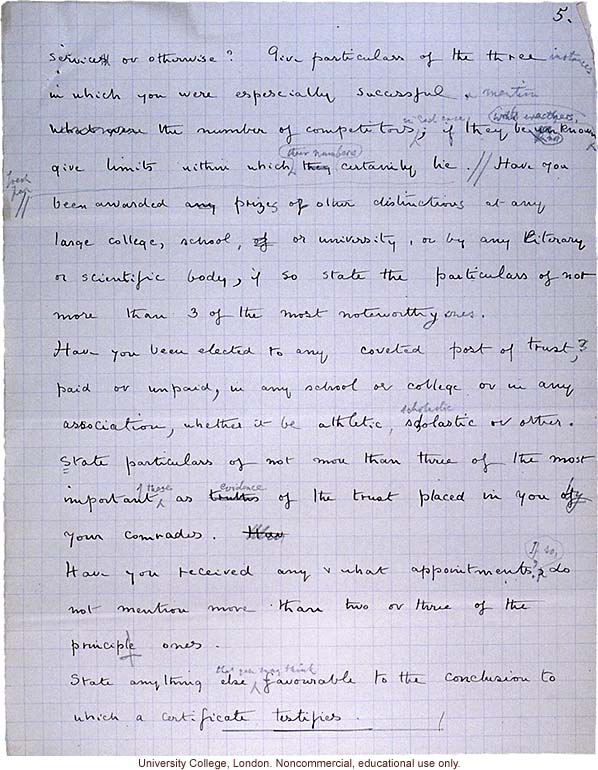 5.
services or otherwise? Give particulars of the three instances
in which you were especially successful & mention
the number of competitors in each case; if they be unknown
give limits within which their numbers they certainly lie. // Have you
been awarded any prizes of other distinctions at any
large college, school, of or university, or by any Literary
or scientific body, if so state the particulars of not
more than 3 of the most noteworthy ones.
Have you been elected to any coveted post of trust,?
paid or unpaid, in any school or college or in any
association, whether it be athletic, scholastic scholastic or other.
State particulars of not more than three of the most
important of these as truths evidence of the trust placed in you by
your comrades. Have
Have you received any & what appointments? If so, do
not mention more than two or three of the
principle ones.
State anything else that you may think favourable to the conclusion to
which a certificate testifies.
University College, London. Noncommercial, educational use only.